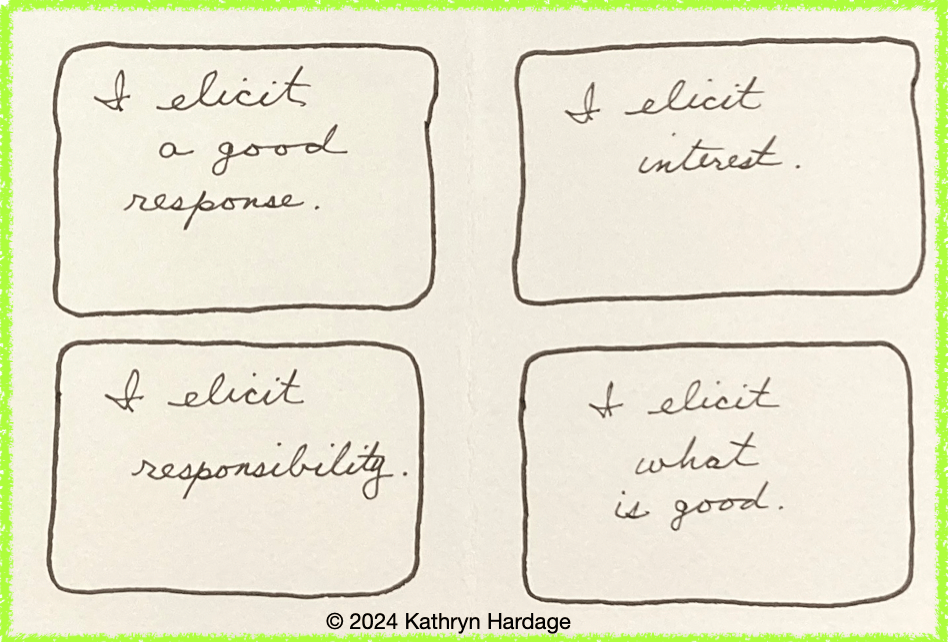 I elicit
a good
response.
I elicit
interest.
I elicit
responsibility.
I elicit
what
is good.
© 2024 Kathryn Hardage